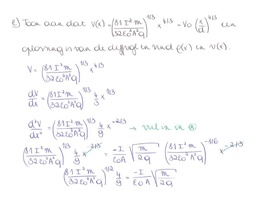 e) Toon aan dat V(x) = (81 I² m / 32 ε₀² A² q)^1/3 x^4/3 = V₀ (x/d)^4/3 een
oplossing is van de diffvgl in vind (x) in V(x).
V = (81 I² m / 32 ε₀² A² q)^1/3 x^4/3
dV/dx = (81 I² m / 32 ε₀² A² q)^1/3 4/3 x^1/3
d²V/dx² = (81 I² m / 32 ε₀² A² q)^1/3 4/9 x^-2/3 → vul in in
(81 I² m / 32 ε₀² A² q)^1/3 4/9 x^-2/3 = -I / ε₀A √(m/2q) (81 I² m / 32 ε₀² A² q)^-1/6 x^-2/3
(81 I² m / 32 ε₀² A² q)^1/2 4/9 = -I / ε₀A √(m/2q)